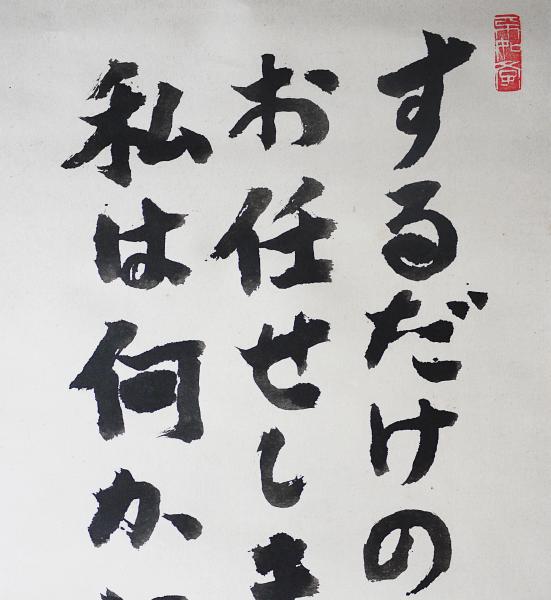 するだけの
お任せしま
私は何か